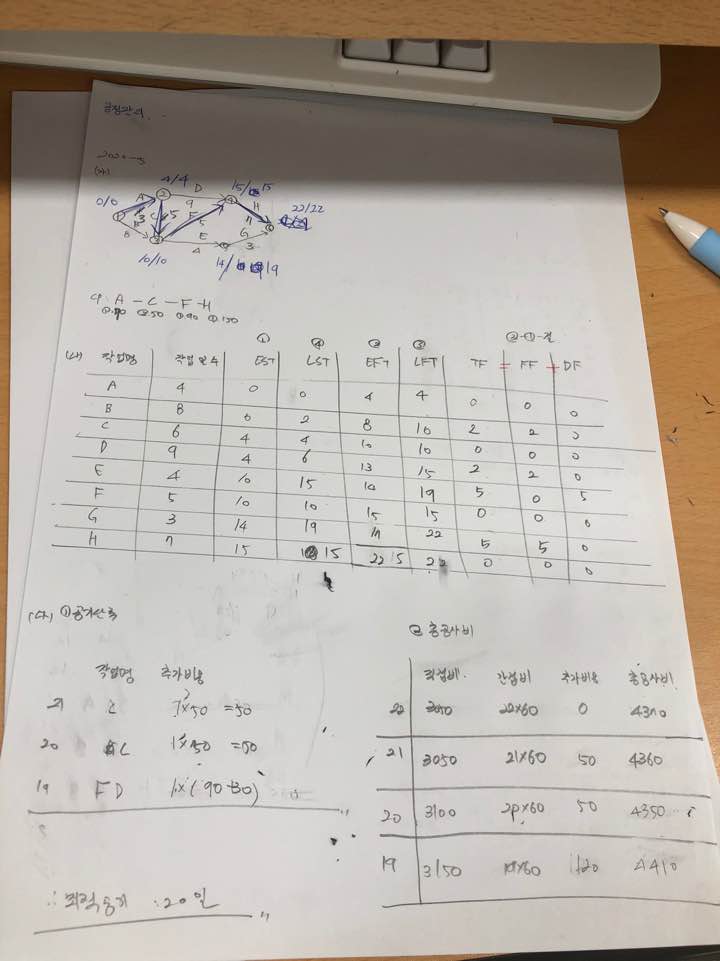 공정관리
2020-3
(가)
4/4
15/15
0/0
A
D
9
H
22/22
C
5
F
5
7
G
B
E
4
3
10/10
14/19
CP: A - C - F - H
① ④ ② ③ ②-①-일
(나) 작업명 작업일수 EST LST EFT LFT TF FF DF
A 4 0 0 4 4 0 0 0
B 8 0 2 8 10 2 2 0
C 6 4 4 10 10 0 0 0
D 9 4 6 13 15 2 2 0
E 4 10 15 14 19 5 0 5
F 5 10 10 15 15 0 0 0
G 3 14 19 17 22 5 5 0
H 7 15 15 22 22 0 0 0
(다) ① 공기단축
작업명 추가비용
21 C 1×50 =50
20 C 1×50 =50
19 FD 1×(90+30)
∴ 최적공기 : 20일
② 총공사비
직접비 간접비 추가비용 총공사비
22 22×60 0
21 3050 21×60 50 4360
20 3100 20×60 50 4350
19 3150 19×60 120 4410